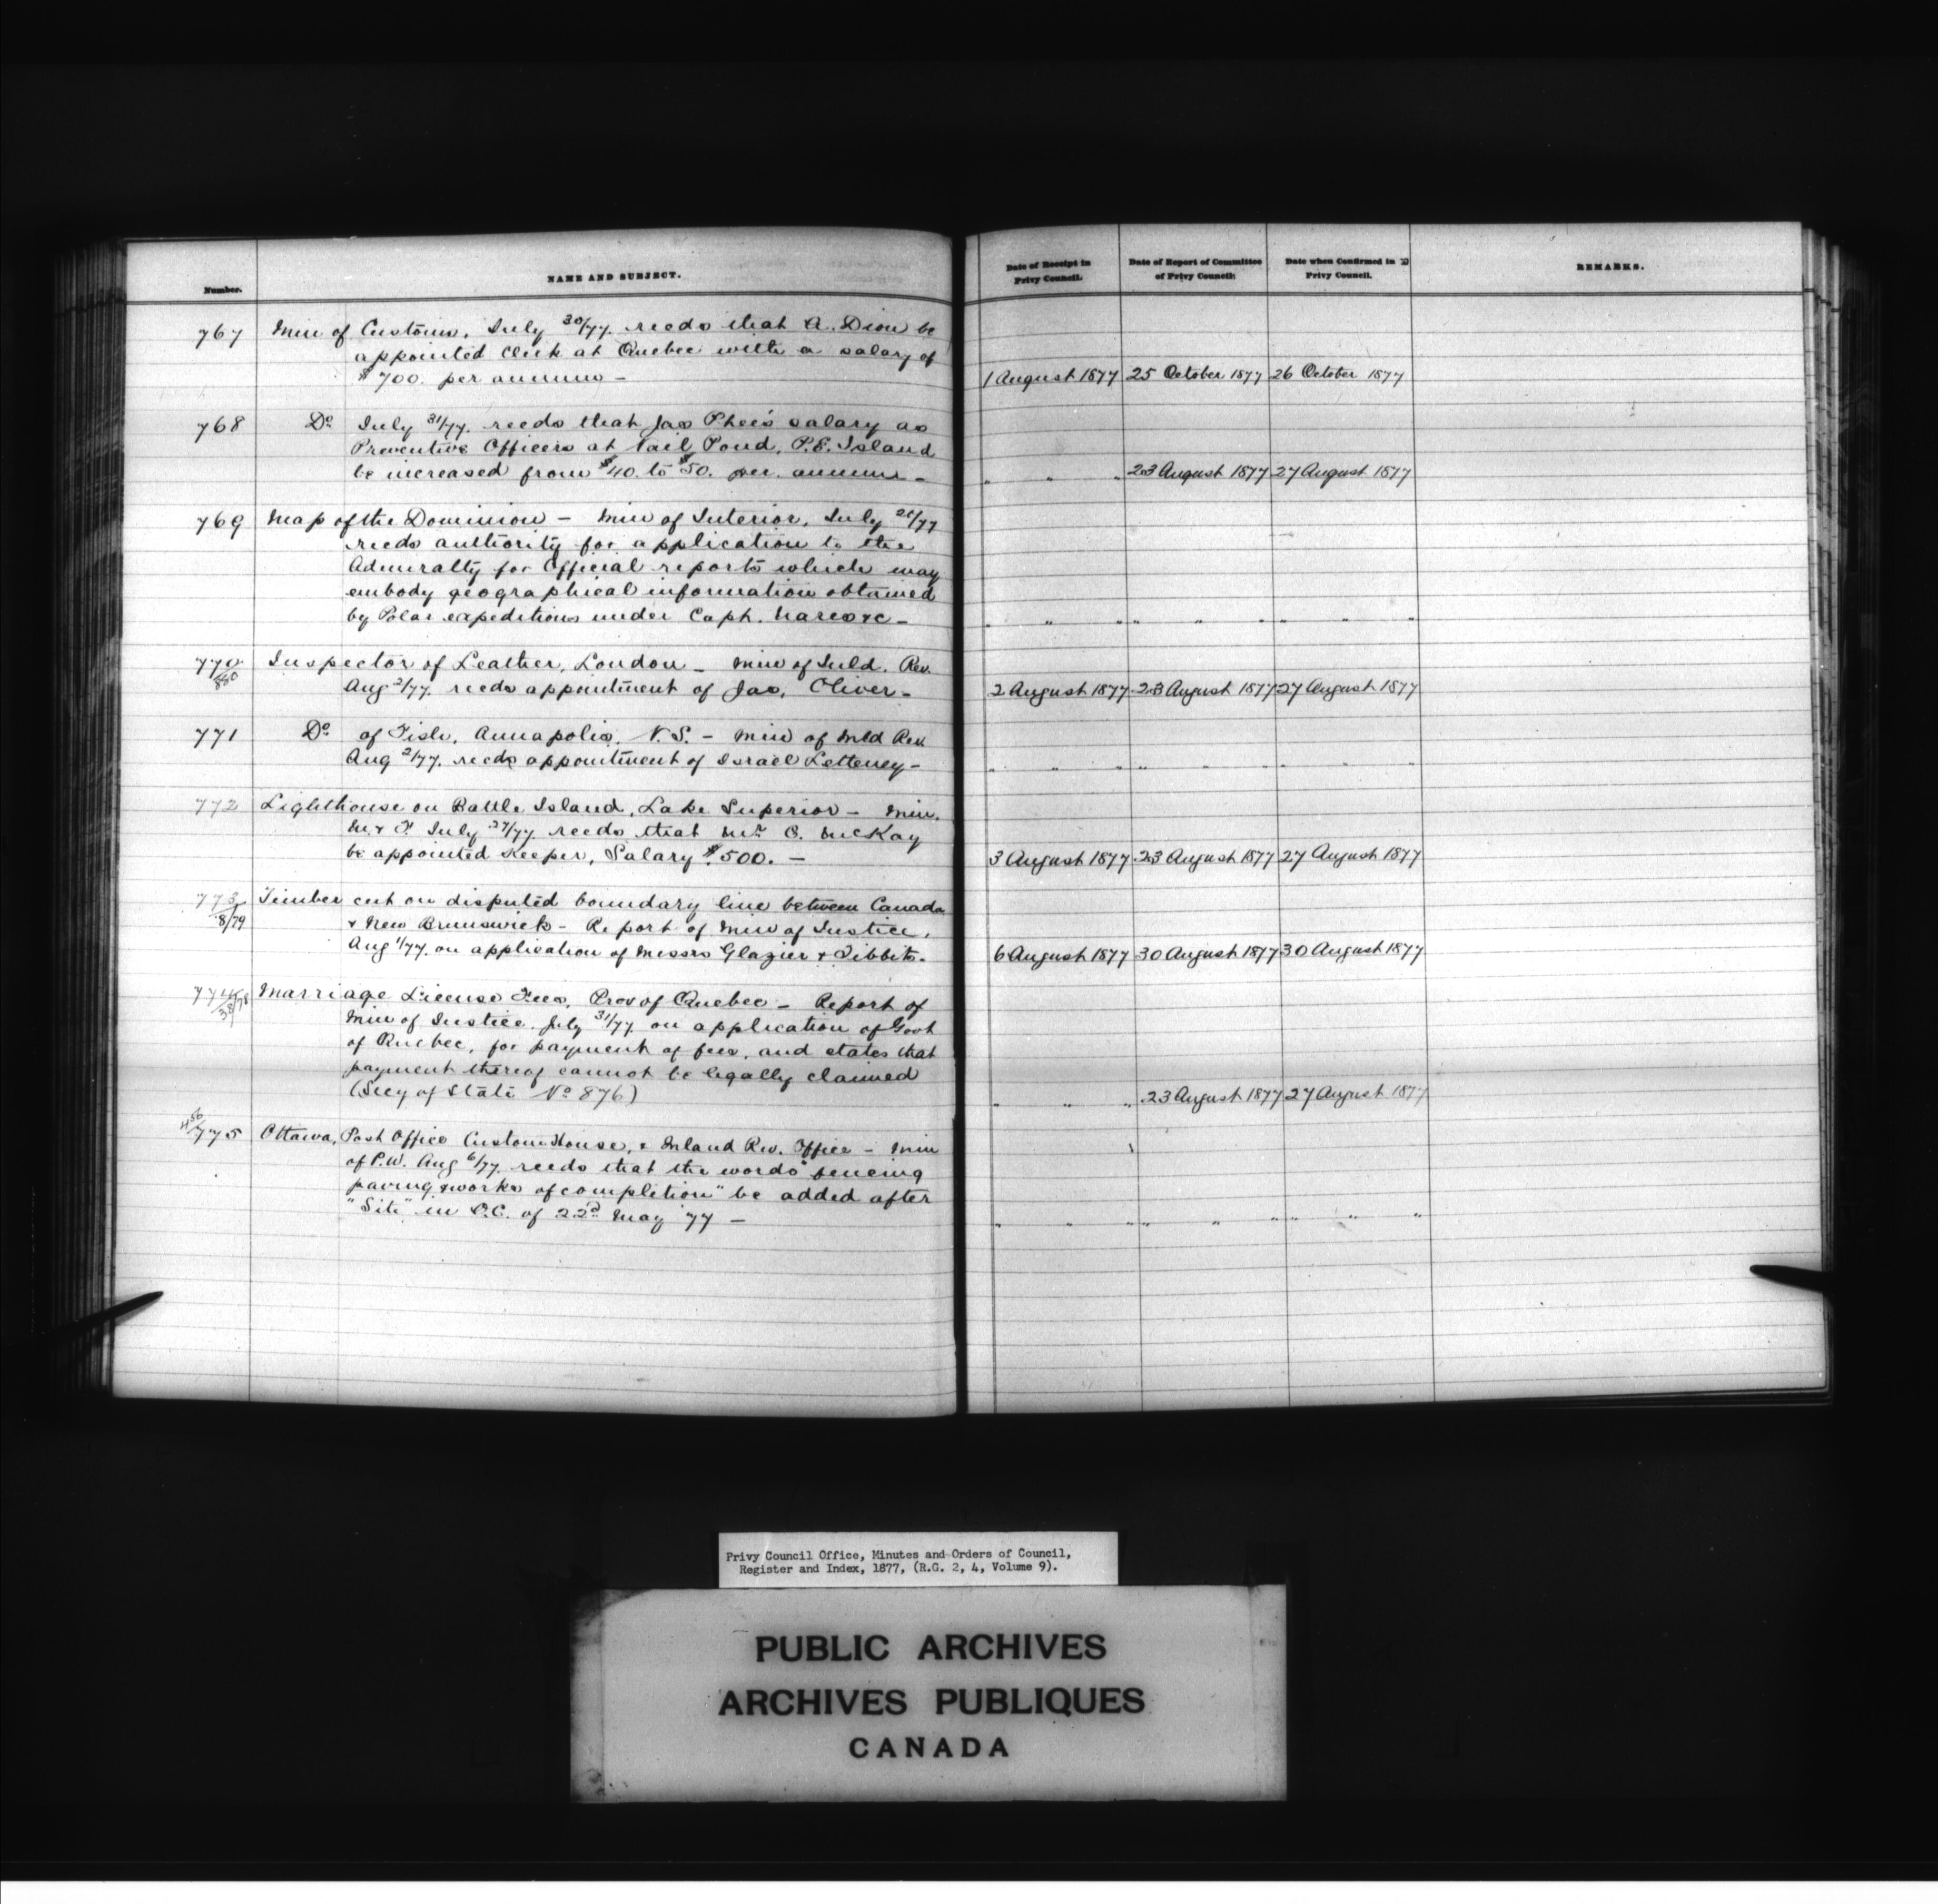 Number.
NAME AND SUBJECT.
Date of Receipt in
Privy Council.
Date of Report of Committee
of Privy Council.
Date when Confirmed in
Privy Council.
REMARKS.
767 Min of Customs, July 30/77. recds that A. Dion be
appointed Clerk at Quebec with a salary of
$700. per annum –
1 August 1877 25 October 1877 26 October 1877
768 Do July 31/77. recds that Jas Phee's salary as
Preventive Officers at Nail Pond, P.E. Island
be increased from $40. to $50. per. annum –
" " " 23 August 1877 27 August 1877
769 Map of the Dominion – Min of Interior, July /77
recds authority for application to the
Admiralty for Official reports which may
embody geographical information obtained
by Polar expeditions under Capt. Nares &c –
" " " " " " " " "
770 Inspector of Leather, London – Min of Inld. Rev.
880
Aug 2/77. recds appointment of Jas. Oliver –
2 August 1877 23 August 1877 27 August 1877
771 Do of Fish, Annapolis, N.S. – Min of Inld Rev
Aug 2/77. recds appointment of Israel Letteney –
" " " " " " " " "
772 Lighthouse on Battle Island, Lake Superior – Min.
M. & F. July 27/77. recds that Mr. C. McKay
be appointed Keeper, Salary $500. –
3 August 1877 23 August 1877 27 August 1877
773 Timber cut on disputed boundary line between Canada
8/79
& New Brunswick – Report of Min of Justice,
Aug 1/77. on application of Messrs Glazier & Tibbits.
6 August 1877 30 August 1877 30 August 1877
774 Marriage License Fees, Prov of Quebec – Report of
38/78
Min of Justice, July 31/77. on application of Govt
of Quebec, for payment of fees, and states that
payment thereof cannot be legally claimed
(Secy of State No 876)
" " " 23 August 1877 27 August 1877
775 Ottawa, Post Office Custom House, & Inland Rev. Office – Min
of P.W. Aug 6/77. recds that the words "fencing
paving & works of completion" be added after
"Site" in O.C. of 22d May 77 –
" " " " " " " " "
Privy Council Office, Minutes and Orders of Council,
Register and Index, 1877, (R.G. 2, 4, Volume 9).
PUBLIC ARCHIVES
ARCHIVES PUBLIQUES
CANADA